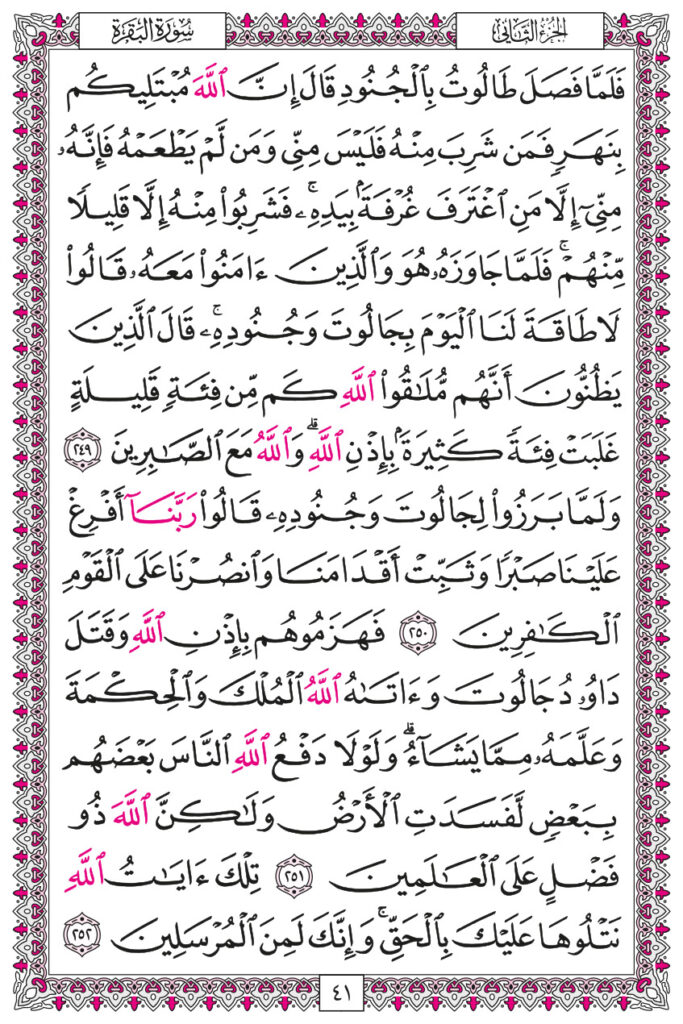 الجزء الثاني
سورة البقرة
فَلَمَّا فَصَلَ طَالُوتُ بِٱلْجُنُودِ قَالَ إِنَّ ٱللَّهَ مُبْتَلِيكُم
بِنَهَرٍ فَمَن شَرِبَ مِنْهُ فَلَيْسَ مِنِّي وَمَن لَّمْ يَطْعَمْهُ فَإِنَّهُۥ
مِنِّيٓ إِلَّا مَنِ ٱغْتَرَفَ غُرْفَةَۢ بِيَدِهِۦۚ فَشَرِبُوا۟ مِنْهُ إِلَّا قَلِيلًا
مِّنْهُمْۚ فَلَمَّا جَاوَزَهُۥ هُوَ وَٱلَّذِينَ ءَامَنُوا۟ مَعَهُۥ قَالُوا۟
لَا طَاقَةَ لَنَا ٱلْيَوْمَ بِجَالُوتَ وَجُنُودِهِۦۚ قَالَ ٱلَّذِينَ
يَظُنُّونَ أَنَّهُم مُّلَٰقُوا۟ ٱللَّهِ كَم مِّن فِئَةٍ قَلِيلَةٍ
غَلَبَتْ فِئَةً كَثِيرَةَۢ بِإِذْنِ ٱللَّهِۗ وَٱللَّهُ مَعَ ٱلصَّٰبِرِينَ ٢٤٩
وَلَمَّا بَرَزُوا۟ لِجَالُوتَ وَجُنُودِهِۦ قَالُوا۟ رَبَّنَآ أَفْرِغْ
عَلَيْنَا صَبْرًا وَثَبِّتْ أَقْدَامَنَا وَٱنصُرْنَا عَلَى ٱلْقَوْمِ
ٱلْكَٰفِرِينَ ٢٥٠ فَهَزَمُوهُم بِإِذْنِ ٱللَّهِ وَقَتَلَ
دَاوُۥدُ جَالُوتَ وَءَاتَىٰهُ ٱللَّهُ ٱلْمُلْكَ وَٱلْحِكْمَةَ
وَعَلَّمَهُۥ مِمَّا يَشَآءُۗ وَلَوْلَا دَفْعُ ٱللَّهِ ٱلنَّاسَ بَعْضَهُم
بِبَعْضٍ لَّفَسَدَتِ ٱلْأَرْضُ وَلَٰكِنَّ ٱللَّهَ ذُو
فَضْلٍ عَلَى ٱلْعَٰلَمِينَ ٢٥١ تِلْكَ ءَايَٰتُ ٱللَّهِ
نَتْلُوهَا عَلَيْكَ بِٱلْحَقِّۚ وَإِنَّكَ لَمِنَ ٱلْمُرْسَلِينَ ٢٥٢
٤١